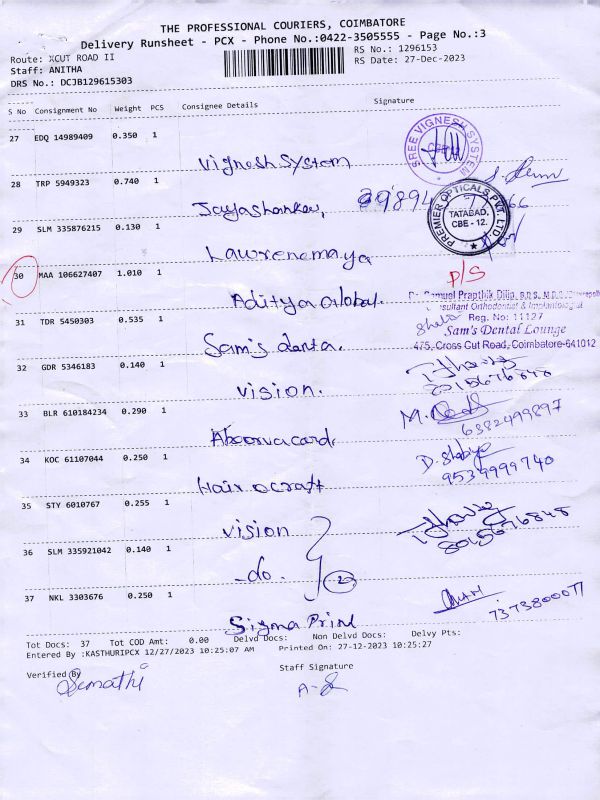 THE PROFESSIONAL COURIERS, COIMBATORE
Delivery Runsheet - PCX - Phone No.:0422-3505555 - Page No.:3
Route: XCUT ROAD II
RS No.: 1296153
Staff: ANITHA
RS Date: 27-Dec-2023
DRS No.: DCJB129615303
S No Consignment No Weight PCS Consignee Details Signature
27 EDQ 14989409 0.350 1
Vignesh System
SREE VIGNESH SYSTEM
28 TRP 5949323 0.740 1
Jayashankar,
29 SLM 335876215 0.130 1
PREMIER OPTICALS PVT. LTD.
TATABAD,
CBE - 12.
30 MAA 106627407 1.010 1
Aditya Global.
P/S
31 TDR 5450303 0.535 1
Sam's denta.
Dr. Samuel Prapthik Dilip, B.D.S., M.D.S.,
Consultant Orthodontist & Implantologist
Reg. No: 11127
Sam's Dental Lounge
475, Cross Cut Road, Coimbatore-641012
32 GDR 5346183 0.140 1
vision.
33 BLR 610184234 0.290 1
Aboorva card.
6382499897
34 KOC 61107044 0.250 1
Hair o craft
D. Shabiya
9539999740
35 STY 6010767 0.255 1
vision
36 SLM 335921042 0.140 1
-do.
2
37 NKL 3303676 0.250 1
Sigma Print
7373800077
Tot Docs: 37 Tot COD Amt: 0.00 Delvd Docs: Non Delvd Docs: Delvy Pts:
Entered By :KASTHURIPCX 12/27/2023 10:25:07 AM Printed On: 27-12-2023 10:25:27
Verified By
Staff Signature